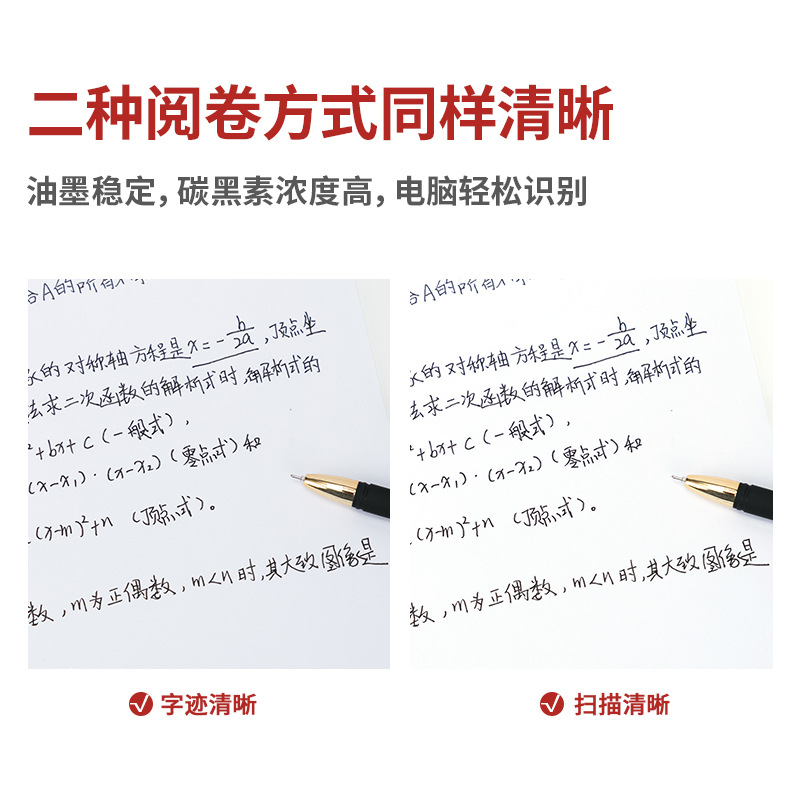 二种阅卷方式同样清晰
油墨稳定，碳黑素浓度高，电脑轻松识别
合A的所有
的对称轴方程是x=-b/2a，顶点坐
去求二次函数的解析式时，解析式的
²+bx+c（一般式），
(x-x₁)·(x-x₂)（零点式）和
(x-m)²+n （顶点式）。
数，m为正偶数，m<n时，其大致图像是
合A的所有
的对称轴方程是x=-b/2a，顶点坐
去求二次函数的解析式时，解析式的
²+bx+c（一般式），
(x-x₁)·(x-x₂)（零点式）和
(x-m)²+n （顶点式）。
数，m为正偶数，m<n时，其大致图像是
字迹清晰
扫描清晰